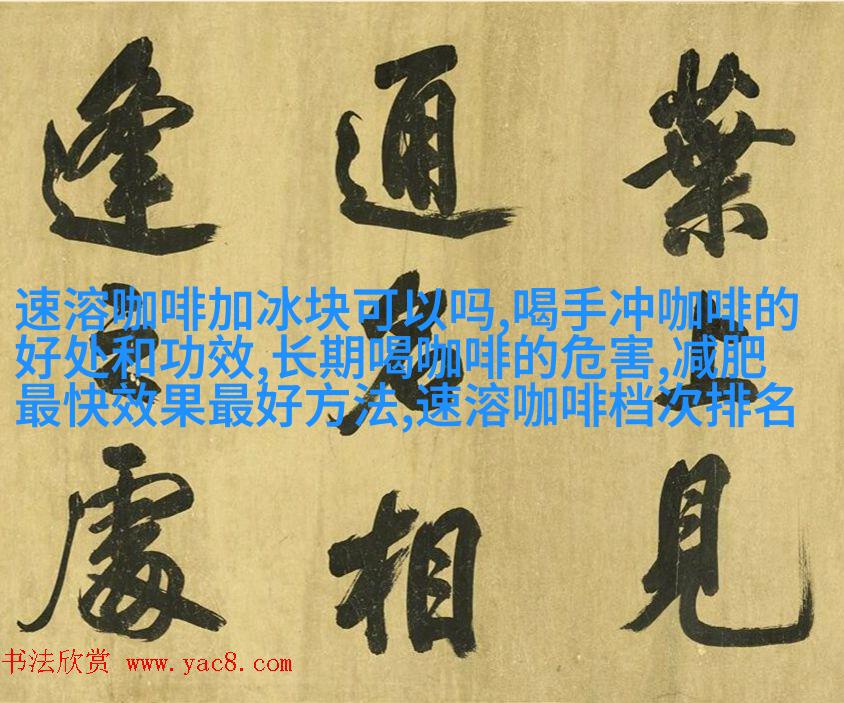 葉上見
通 相
逢 處
速溶咖啡加冰块可以吗,喝手冲咖啡的
好处和功效,长期喝咖啡的危害,减肥
最快效果最好方法,速溶咖啡档次排名
书法欣赏 www.yac8.com